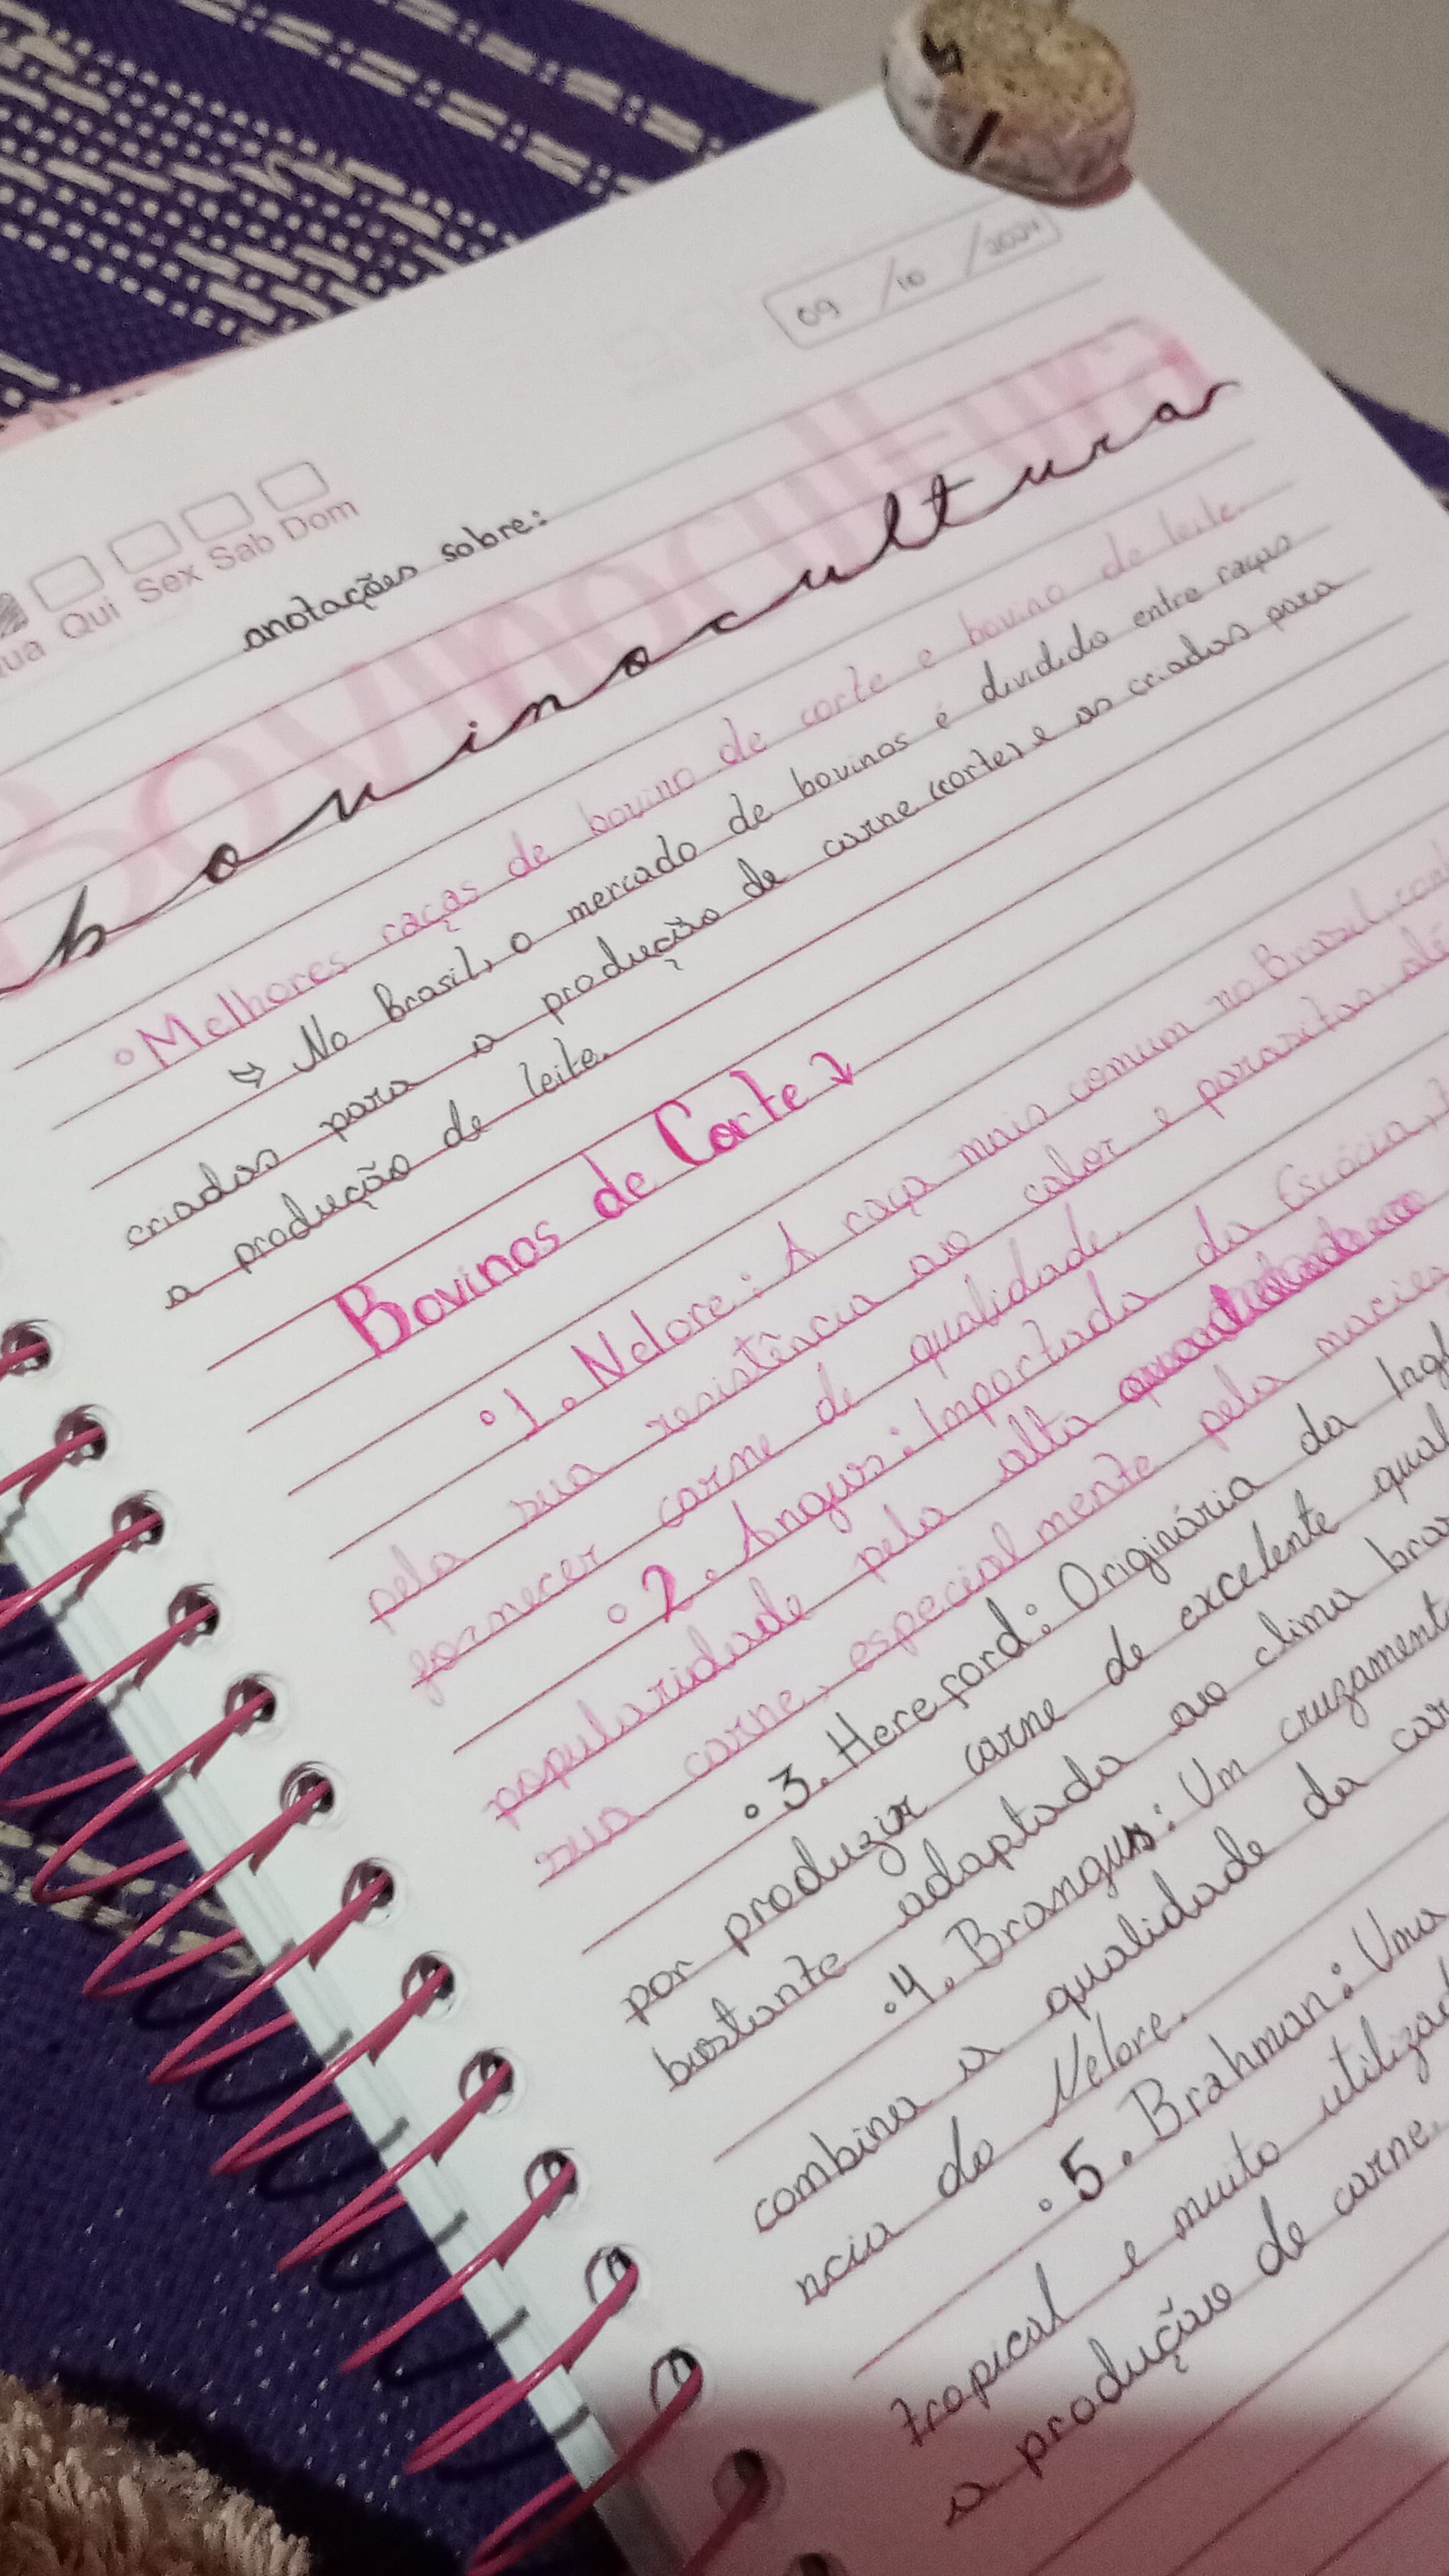 09 / 10 / 2024
Qui Sex Sab Dom
anotações sobre:
Bovinocultura
bovinocultura
• Melhores raças de bovino de corte e bovino de leite.
⇨ No Brasil, o mercado de bovinos é dividido entre raças
criadas para a produção de carne (corte) e as criadas para
a produção de leite.
Bovinos de Corte ↓
• 1. Nelore: A raça mais comum no Brasil,
pela sua resistência ao calor e parasitas,
fornecer carne de qualidade.
• 2. Angus: Importada da Escócia,
popularidade pela alta
sua carne, especialmente pela maciez
• 3. Hereford: Originária da
por produzir carne de excelente
bastante adaptada ao clima
• 4. Brangus: Um cruzament
combina a qualidade da car
ncia do Nelore.
• 5. Brahman: Uma
tropical e muito utilizad
a produção de carne.